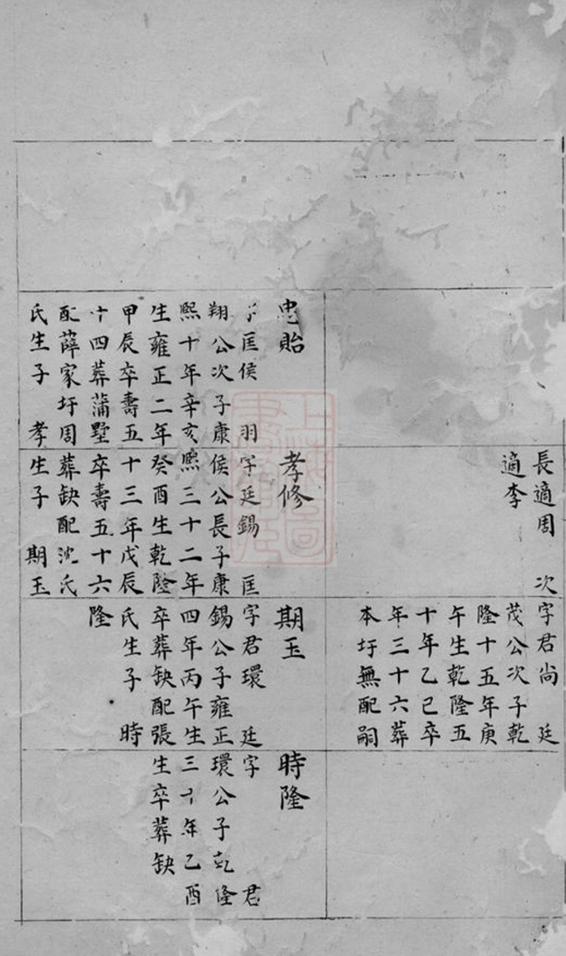 長適周 次
適李
字君尚 廷
茂公次子乾
隆十五年庚
午生乾隆五
十年乙巳卒
年三十六葬
本圩無配嗣
忠貽
字匡侯 羽
翔公次子康
熙十年辛亥
生雍正二年
甲辰卒壽五
十四葬蒲墅
配薛家圩周
氏生子 孝
孝修
字廷錫 匡
侯公長子康
熙三十二年
癸酉生乾隆
十三年戊辰
卒壽五十六
葬缺配沈氏
生子 期玉
期玉
字君環 廷
錫公子雍正
四年丙午生
卒葬缺配張
氏生子 時
隆
時隆
字 君
環公子乾隆
三十年乙酉
生卒葬缺